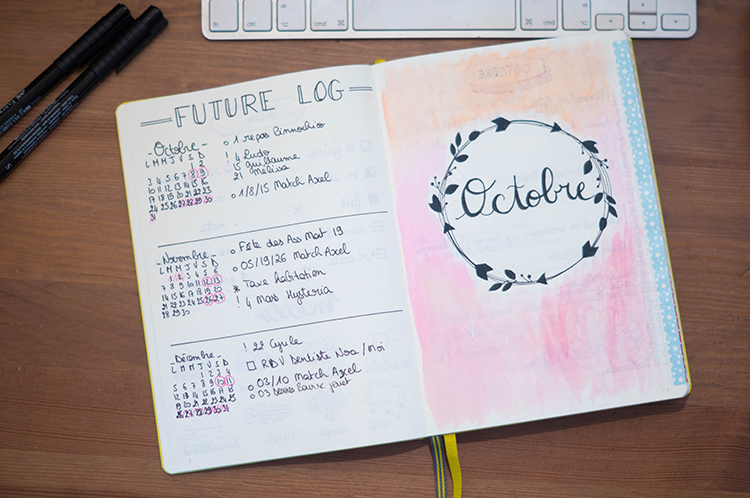 FUTURE LOG
-Octobre-
L M M J V S D
1 2
3 4 5 6 7 8 9
10 11 12 13 14 15 16
17 18 19 20 21 22 23
24 25 26 27 28 29 30
31
o 1 repas
! 4 Ludo
15 Guillaume
21 Melissa
o 1/8/15 Match Axel
-Novembre-
L M M J V S D
1 2 3 4 5 6
7 8 9 10 11 12 13
14 15 16 17 18 19 20
21 22 23 24 25 26 27
28 29 30
o Fête des Ass Mat 19
o 05/19/26 Match Axel
* Taxe habitation
! 4 Mass Hysteria
-Décembre-
L M M J V S D
1 2 3 4
5 6 7 8 9 10 11
12 13 14 15 16 17 18
19 20 21 22 23 24 25
26 27 28 29 30 31
! 22 Cyrile
□ RDV Dentiste Noa / Moi
o 03/10 Match Axel
o 03 Bourse jouet
OCTOBRE
Octobre